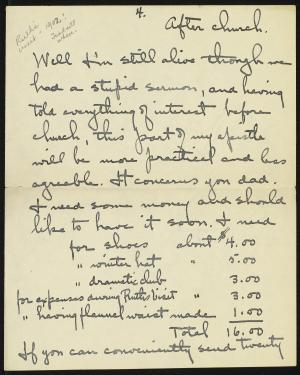 4.
Ruth's
visit - 1902.
After church.
Well I'm still alive though we
had a stupid sermon, and having
told everything of interest before
church, this part of my epistle
will be more practical and less
agreeable. It concerns you dad.
I need some money and should
like to have it soon. I need
for shoes about $4.00
" winter hat " 5.00
" dramatic club 3.00
for expenses during Ruth's visit " 3.00
" having flannel waist made 1.00
Total 16.00
If you can conveniently send twenty